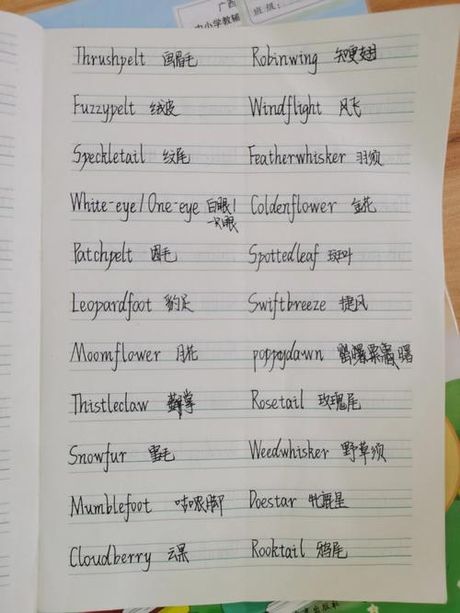 广西
中小学教辅
班级：
Thrushpelt 画眉毛 Robinwing 知更翅
Fuzzypelt 绒皮 Windflight 风飞
Speckletail 纹尾 Featherwhisker 羽须
White-eye/One-eye 白眼/ Coldenflower 金花
一只眼
Patchpelt 毛 Spottedleaf 斑叶
Leopardfoot 豹足 Swiftbreeze 捷风
Moomflower 月花 poppydawn 曙
Thistleclaw 掌 Rosetail 玫瑰尾
Snowfur 雪毛 Weedwhisker 野草须
Mumblefoot 咕哝脚 Doestar 牝鹿星
Cloudberry 云果 Rooktail 鸦尾